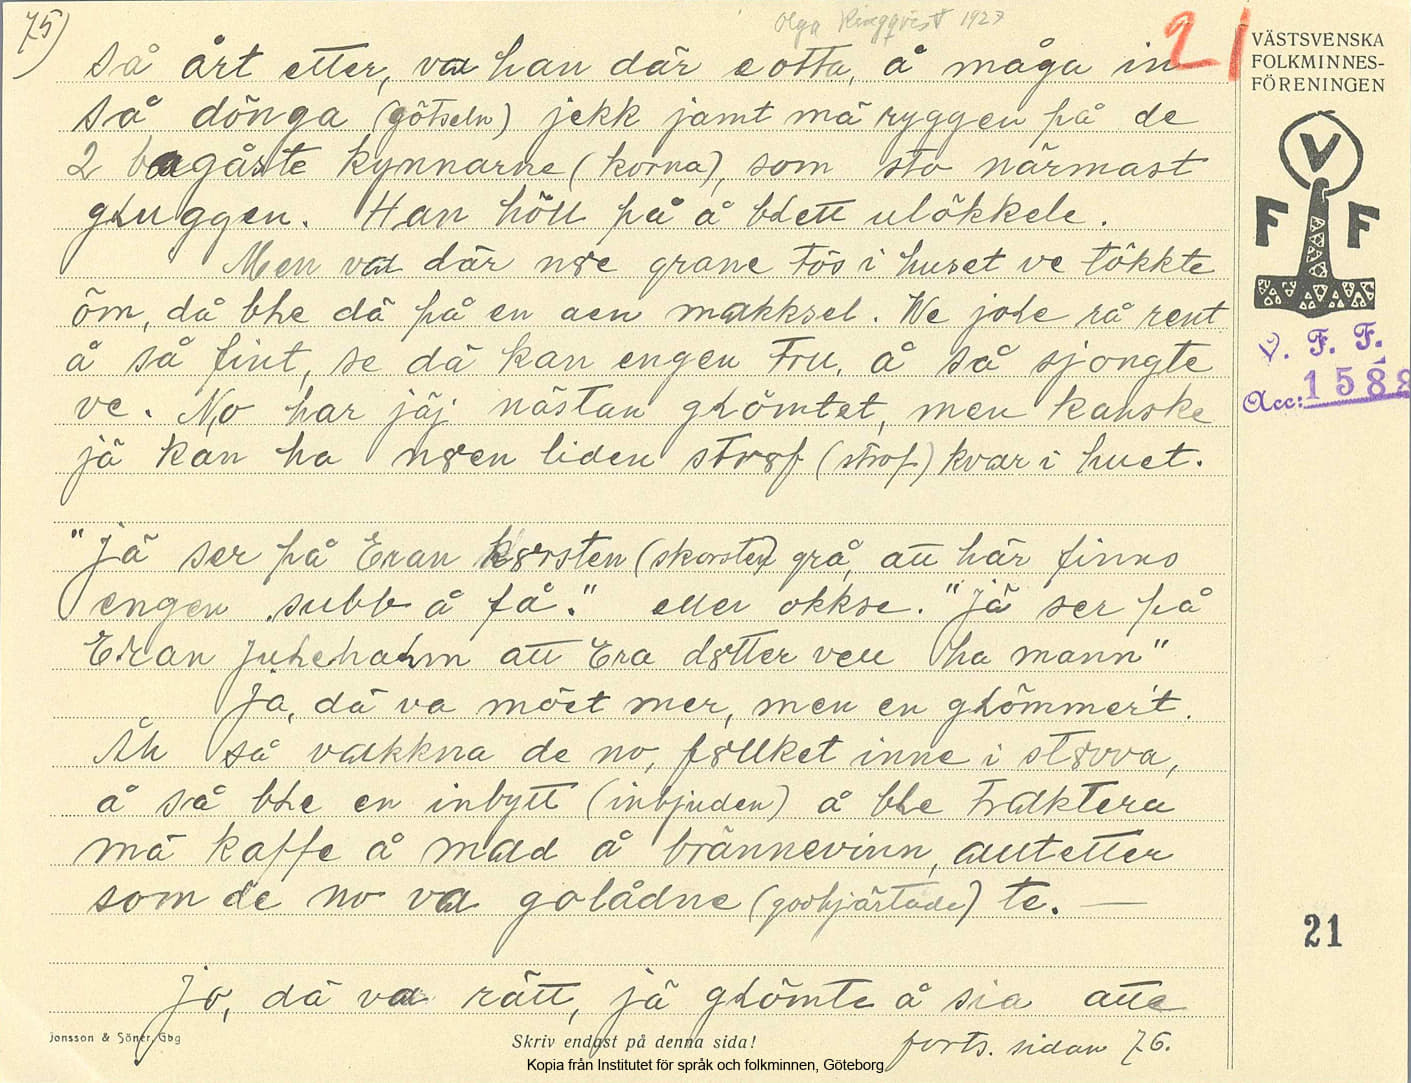 75)
Olga Ringqvist 1927
21
VÄSTSVENSKA
FOLKMINNES-
FÖRENINGEN
V
F F
V. F. F.
Acc: 1588
så årt etter, va han där eotta, å måga in
så dönga (götseln) jekk jamt mä ryggen på de
2 bagårte kynnarne (korna), som sto närmast
gLuggen. Han höll på å bLett ulökkele.
Men va där n8e grane tös i huset ve tökkte
öm, då bLe dä på en aen makksel. We joLe rå rent
å så fint, se dä kan engen tru, å så sjongte
ve. No har jäj nästan gLömtet, men kanske
jä kan ha n8en liden str8f (strof) kvar i huet.
"Jä ser på Eran k8rsten (skorsten) grå, att här finns
engen subb å få." eller okkse. "Jä ser på
Eran JuLehaLm att Era d8tter vell ha mann"
Ja, dä va möet mer, men en gLömmer't.
Äh så vakkna de no, f8llket inne i st8vva,
å så bLe en inbytt (inbjuden) å bLe traktera
mä kaffe å mad å brännevinn, autetter
som de no va golådne (godhjärtade) te. —
21
Jo, dä va rätt, jä gLömte å sia atte
Jonsson & Söner, Gbg
Skriv endast på denna sida!
forts. sidan 76.
Kopia från Institutet för språk och folkminnen, Göteborg